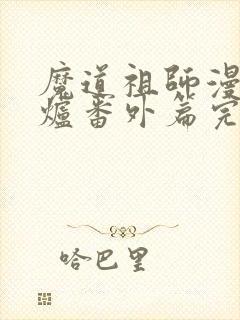 魔道祖師漫
爐番外篇完
哈巴里